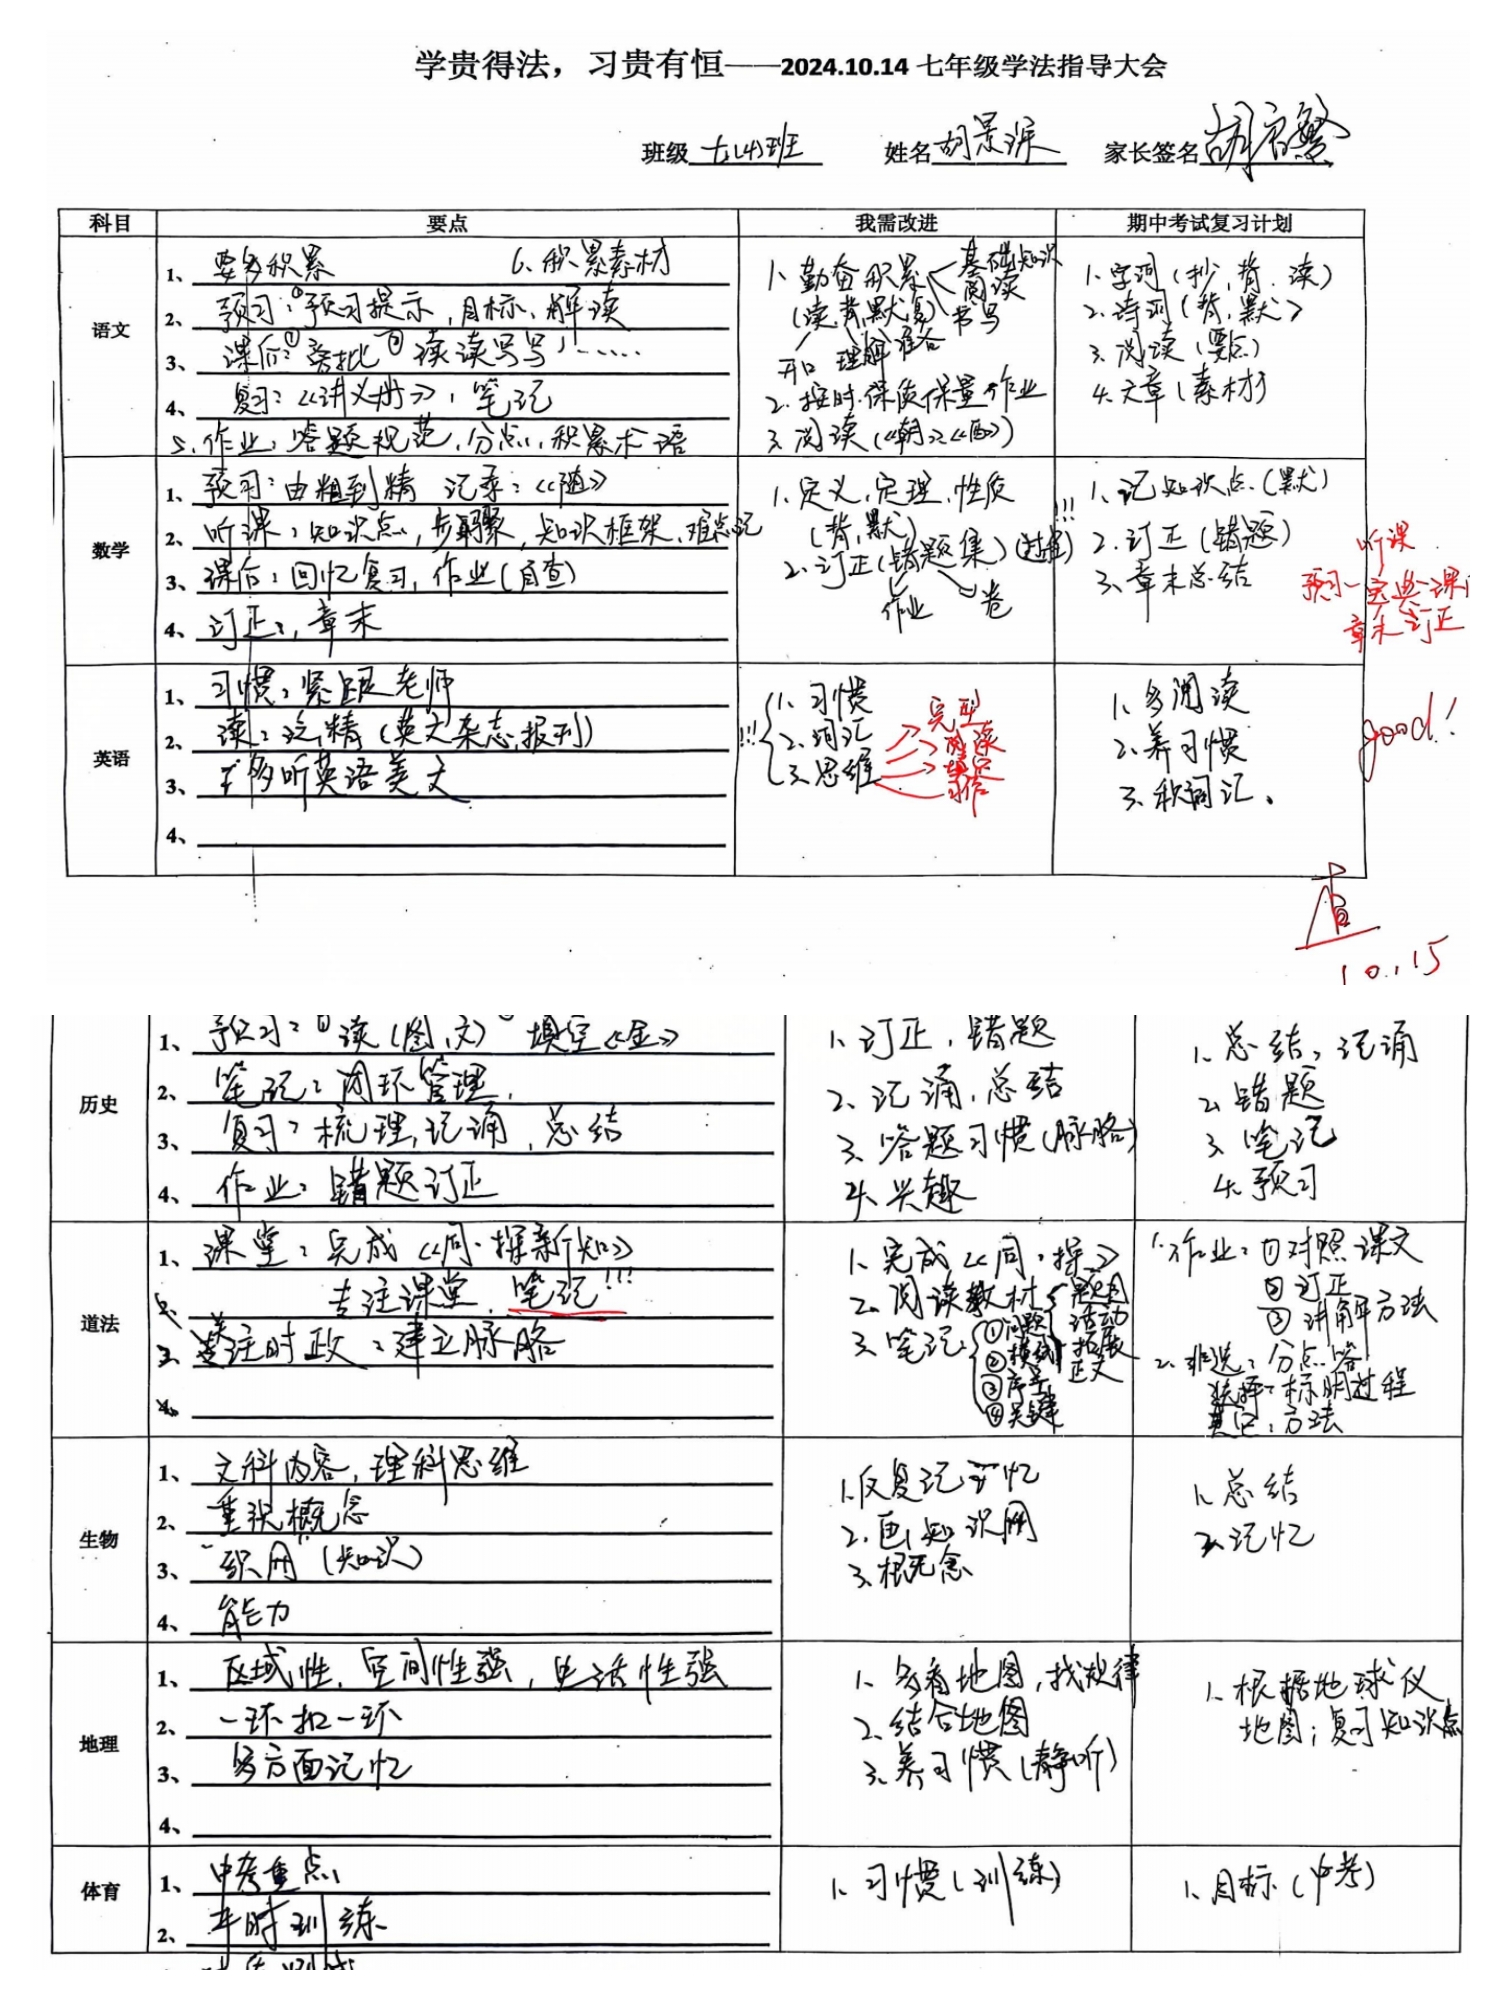 学贵得法，习贵有恒——2024.10.14 七年级学法指导大会
班级 七(4)班 姓名 胡景 家长签名 胡
科目 要点 我需改进 期中考试复习计划
语文
1、要多积累 6、积累素材
2、预习：①预习提示，目标、解读
3、课后：①旁批 ②读读写写……
4、复习：《讲义册》，笔记
5、作业：答题规范，分点，积累术语
1、勤奋积累 基础知识 阅读 书写
(读，背，默，复)
开口 理解 准备
2、按时、保质保量作业
3、阅读（《朝》《西》）
1、字词（抄，背，读）
2、诗词（背，默）
3、阅读（要点）
4、文章（素材）
数学
1、预习：由粗到精 记录：《随》
2、听课：知识点，步骤，知识框架，难点记
3、课后：回忆复习，作业（自查）
4、订正：，章末
1、定义，定理，性质
（背，默）
2、订正（错题集）（过程）!!!
作业 卷
1、记知识点（默）
2、订正（错题）
3、章末总结
听课
预习—宝典—课
章末 订正
英语
1、习惯：紧跟老师
2、读：泛，精（英文杂志，报刊）
3、多听英语美文
4、
!!! 1、习惯
2、词汇
3、思维
完型
阅读
1、多阅读
2、养习惯
3、积词汇。
good!
查
10.15
历史
1、预习：①读（图，文）②填空《金》
2、笔记：闭环管理，
3、复习：梳理，记诵，总结
4、作业：错题订正
1、订正，错题
2、记诵，总结
3、答题习惯（脉络）
4、兴趣
1、总结，记诵
2、错题
3、笔记
4、预习
道法
1、课堂：完成《同·探新知》
2、专注课堂，笔记!!!
3、关注时政：建立脉络
4、
1、完成《同·探》
2、阅读教材 题目 活动 拓展 正文
3、笔记 ①问题 ②横线 ③序号 ④关键
1、作业：①对照课文
②订正
③讲解方法
2、非选：分点答
选择：标明过程
其它：方法
生物
1、文科内容，理科思维
2、重视概念
3、“织网”（知识）
4、能力
1、反复记忆
2、画知识网
3、概念
1、总结
2、记忆
地理
1、区域性，空间性强，生活性强
2、一环扣一环
3、多方面记忆
4、
1、多看地图，找规律
2、结合地图
3、养习惯（静听）
1、根据地球仪
地图；复习知识点
体育
1、中考重点
2、平时训练
1、习惯（训练）
1、目标（中考）